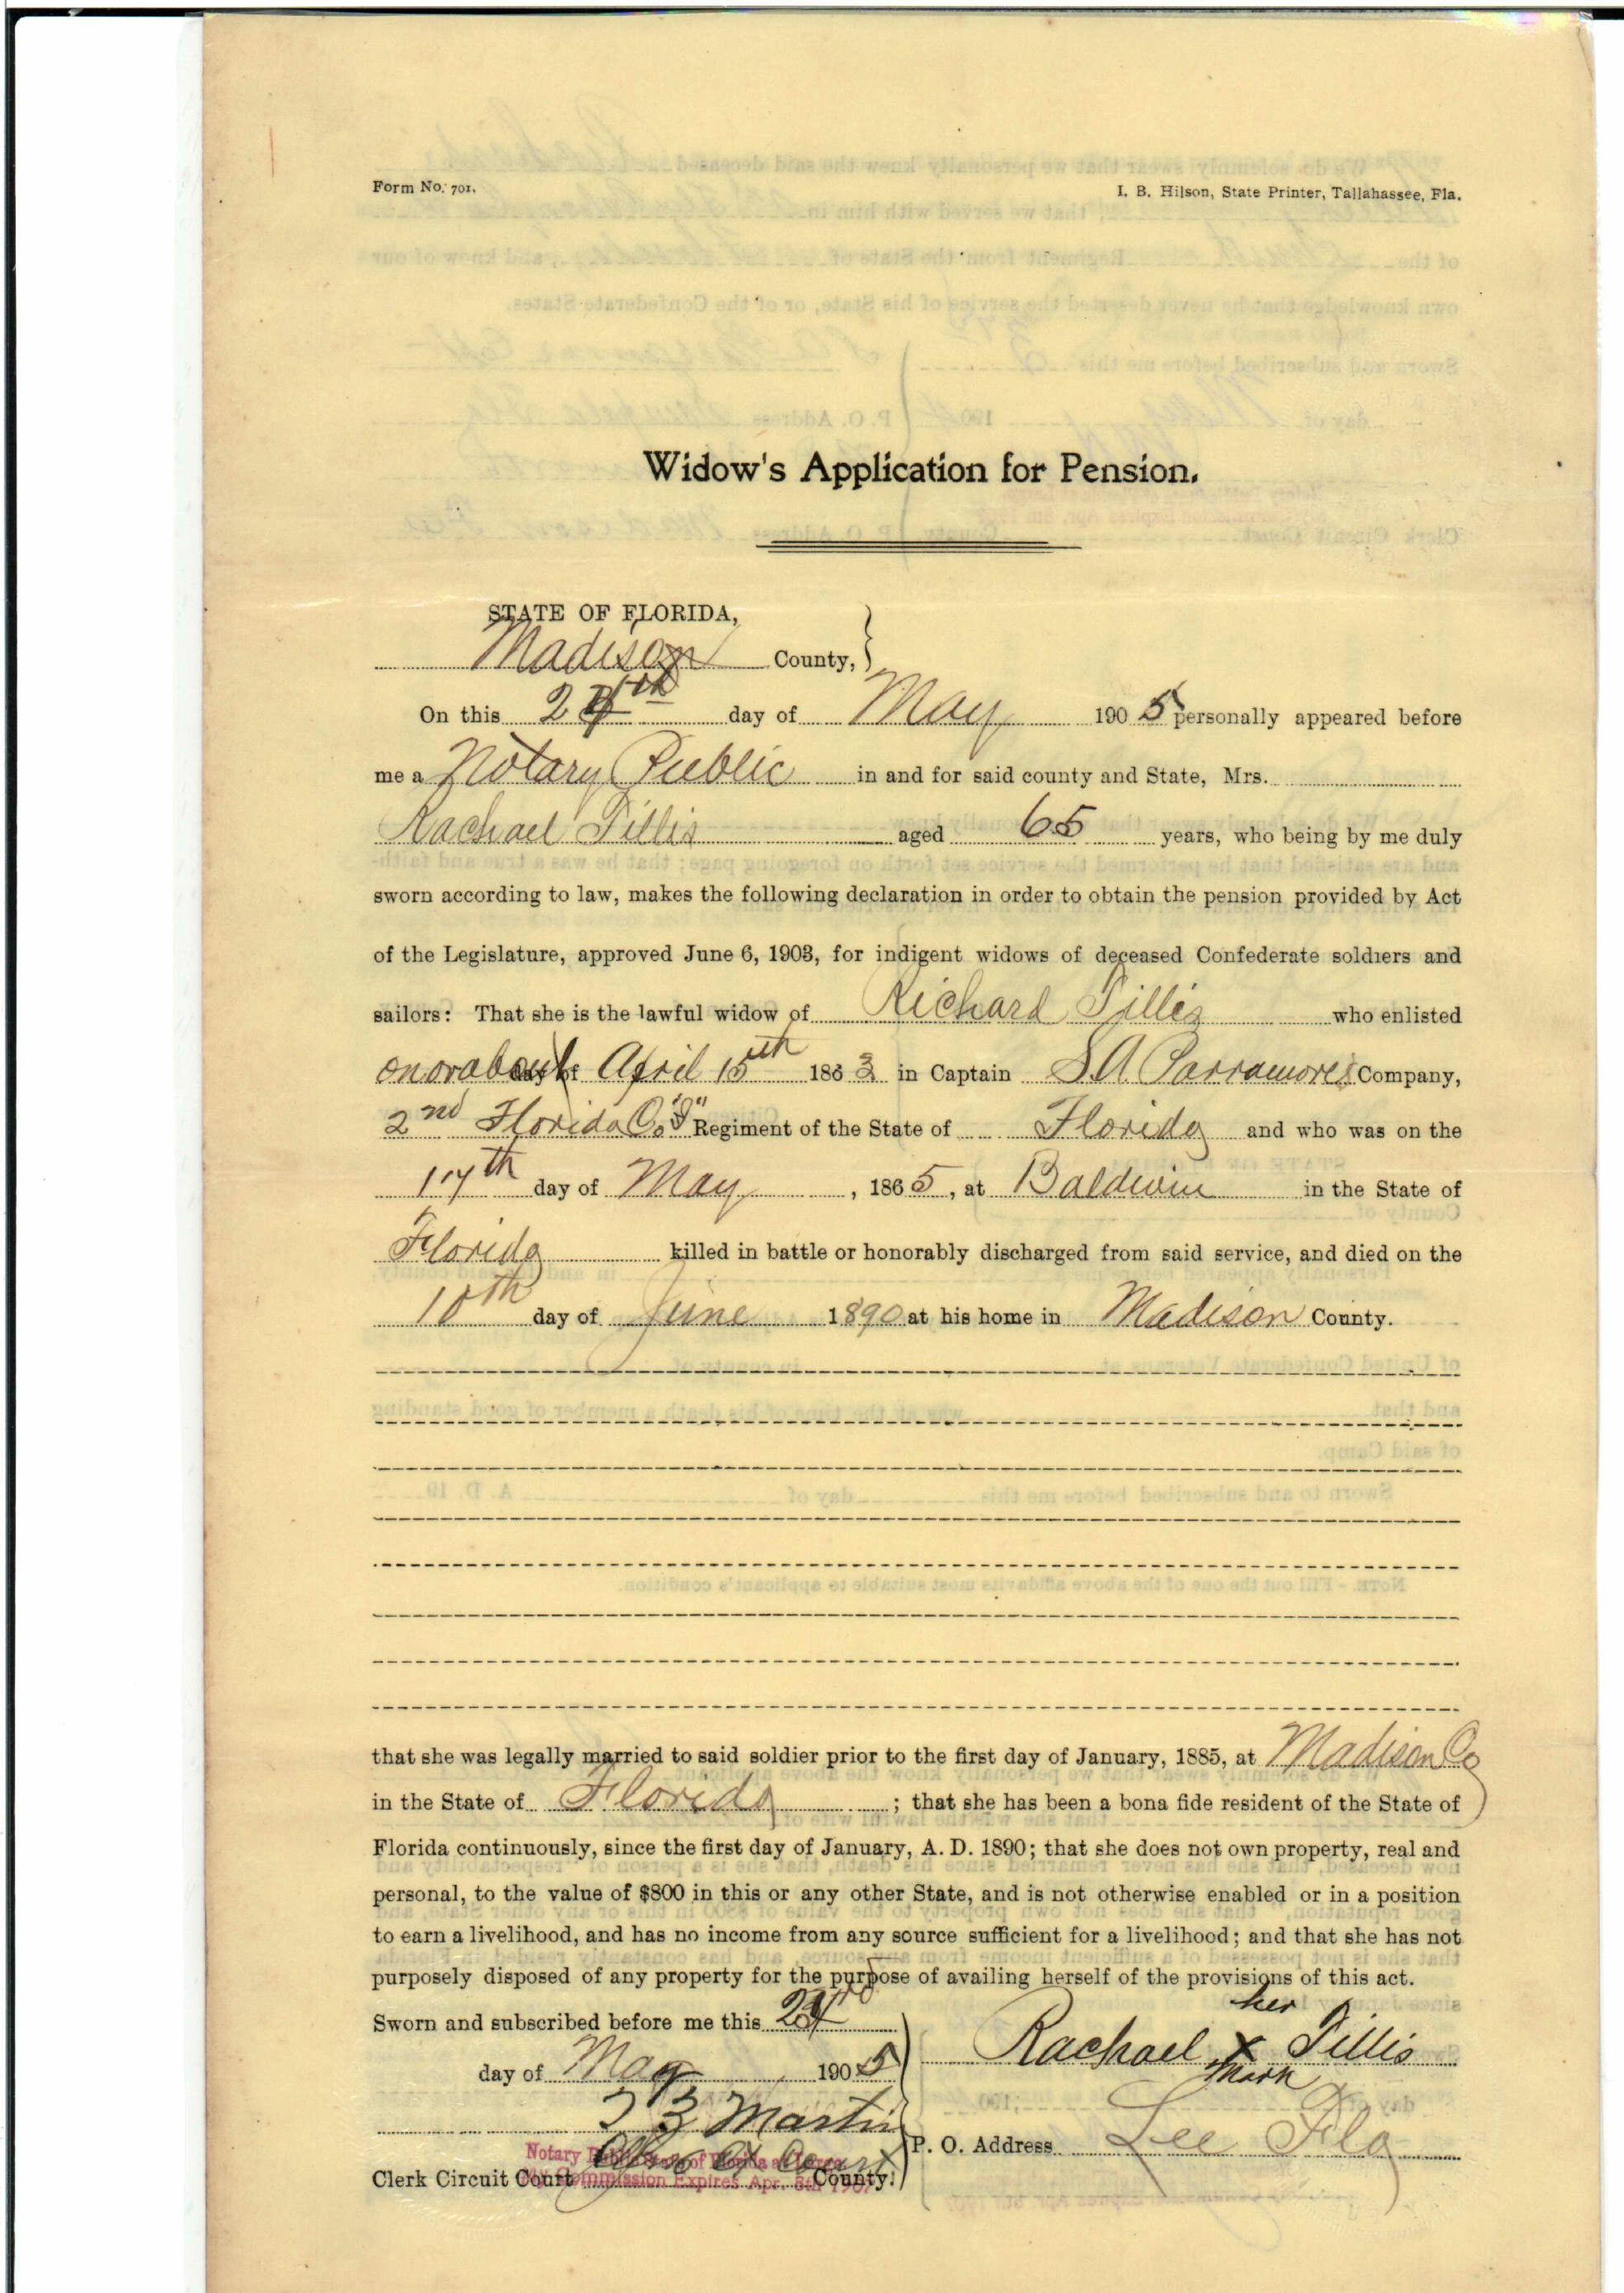 Form No. 701.
I. B. Hilson, State Printer, Tallahassee, Fla.
Widow's Application for Pension.
STATE OF FLORIDA,
Madison County,
On this 24th day of May 1905 personally appeared before
me a Notary Public in and for said county and State, Mrs.
Rachael Tillis aged 65 years, who being by me duly
sworn according to law, makes the following declaration in order to obtain the pension provided by Act
of the Legislature, approved June 6, 1903, for indigent widows of deceased Confederate soldiers and
sailors: That she is the lawful widow of Richard Tillis who enlisted
on or about day of April 15th 1863 in Captain S. A. Parramores Company,
2nd Florida Co. Regiment of the State of Florida and who was on the
17th day of May, 1865, at Baldwin in the State of
Florida killed in battle or honorably discharged from said service, and died on the
10th day of June 1890 at his home in Madison County.
that she was legally married to said soldier prior to the first day of January, 1885, at Madison Co
in the State of Florida; that she has been a bona fide resident of the State of
Florida continuously, since the first day of January, A. D. 1890; that she does not own property, real and
personal, to the value of $800 in this or any other State, and is not otherwise enabled or in a position
to earn a livelihood, and has no income from any source sufficient for a livelihood; and that she has not
purposely disposed of any property for the purpose of availing herself of the provisions of this act.
Sworn and subscribed before me this
day of May 1905
Martin
Clerk Circuit Court County.
Notary Public State of Florida at Large
My Commission Expires Apr. 8th 1907
her
Rachael x Tillis
mark
P. O. Address Lee Fla